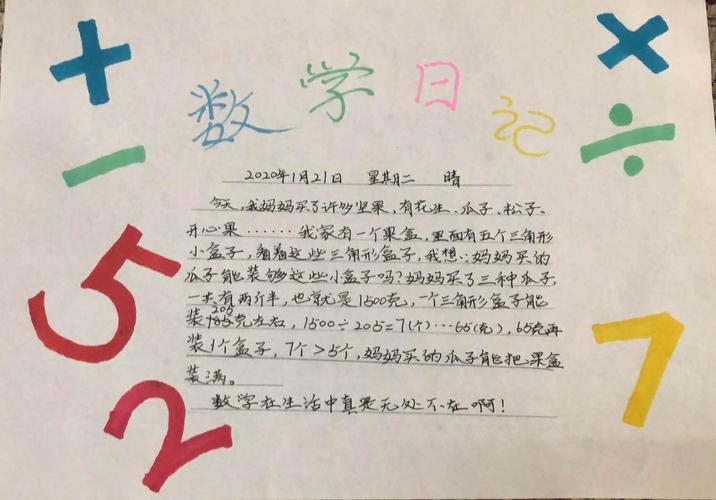 + ×
数学日记
- ÷
2020年1月21日 星期二 晴
今天,我妈妈买了许多坚果,有花生、瓜子、松子、
开心果……我家有一个果盒,里面有五个三角形
小盒子,看着这些三角形盒子,我想:妈妈买的
瓜子能装够这些小盒子吗?妈妈买了三种瓜子,
一共有两斤半,也就是1500克,一个三角形盒子能
装205克左右,1500÷205=7(个)…65(克),65克再
装1个盒子,7个>5个,妈妈买的瓜子能把果盒
装满。
数学在生活中真是无处不在啊!
5
7
2